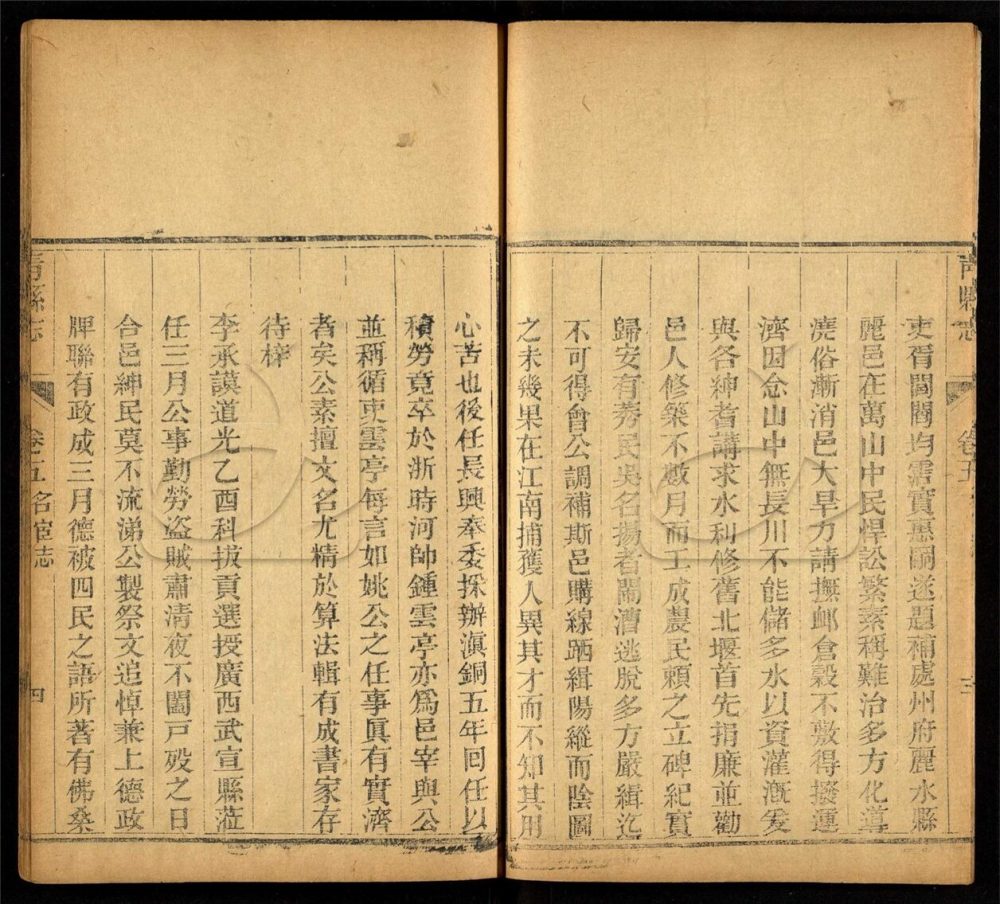 青縣志
卷五
三
吏胥閭閻均霑實惠嗣遂題補處州府麗水縣
麗邑在萬山中民悍訟繁素稱難治多方化導
澆俗漸消邑大旱力請撫邮倉穀不敷得撥運
濟因念山中無長川不能儲多水以資灌漑爰
與各紳耆講求水利修舊北堰首先捐廉並勸
邑人修築不數月而工成農民賴之立碑紀實
歸安有秀民吳名揚者鬧漕逃脫多方嚴緝迄
不可得會公調補斯邑購線跴緝陽縱而陰圖
之未幾果在江南捕獲人異其才而不知其用
心苦也後任長興奉委採辦滇銅五年回任以
積勞竟卒於浙時河帥鍾雲亭亦爲邑宰與公
並稱循吏雲亭每言如姚公之任事眞有實濟
者矣公素擅文名尤精於算法輯有成書家存
待梓
李承謨道光乙酉科拔貢選授廣西武宣縣蒞
任三月公事勤勞盜賊肅淸夜不闔戸歿之日
合邑紳民莫不流涕公製祭文追悼兼上德政
牌聯有政成三月德被四民之語所著有佛桑
青縣志
卷五 名宦志
四